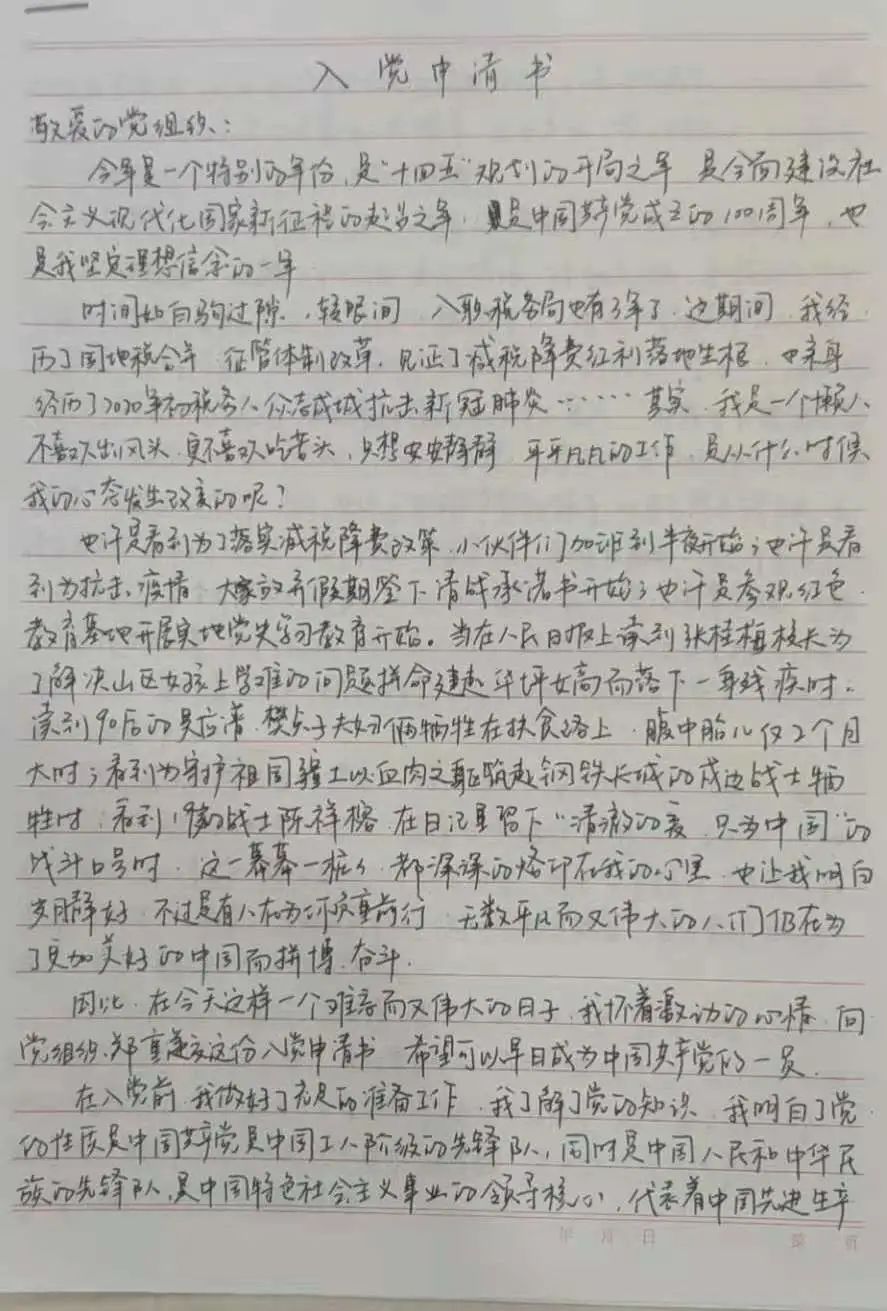 入党申请书
敬爱的党组织:
今年是一个特别的年份,是“十四五”规划的开局之年 是全面建设社
会主义现代化国家新征程的起步之年, 是中国共产党成立的100周年,也
是我坚定理想信念的一年
时间如白驹过隙,转眼间 入职税务局也有3年了.这期间,我经
历了国地税合并 征管体制改革,见证了减税降费红利落地生根,也亲身
经历了2020年初税务人众志成城抗击新冠肺炎……其实,我是一个懒人,
不喜欢出风头,更不喜欢吃苦头,只想安安静静 平平凡凡的工作,是从什么时候
我的心态发生改变的呢?
也许是看到为了落实减税降费政策,小伙伴们加班到半夜开始;也许是看
到为抗击疫情 大家放弃假期签下请战承诺书开始;也许是参观红色
教育基地开展实地党史学习教育开始。当在人民日报上读到张桂梅校长为
了解决山区女孩上学难的问题拼命建起华坪女高而落下一身残疾时。
读到90后的吴应谱,樊贞子夫妇俩牺牲在扶贫路上,腹中胎儿仅2个月
大时;看到为守护祖国疆土以血肉之躯筑起钢铁长城的戍边战士牺
牲时,看到19岁的战士陈祥榕 在日记里留下“清澈的爱,只为中国”的
战斗口号时,这一幕幕一桩桩 都深深的烙印在我的心里,也让我明白
岁月静好,不过是有人在为你负重前行,无数平凡而又伟大的人们仍在为
了更加美好的中国而拼搏、奋斗.
因此,在今天这样一个难忘而又伟大的日子,我怀着激动的心情,向
党组织郑重递交这份入党申请书 希望可以早日成为中国共产党的一员.
在入党前,我做好了充足的准备工作,我了解了党的知识,我明白了党
的性质是中国共产党是中国工人阶级的先锋队,同时是中国人民和中华民
族的先锋队,是中国特色社会主义事业的领导核心,代表着中国先进生产
年 月 日 第 页